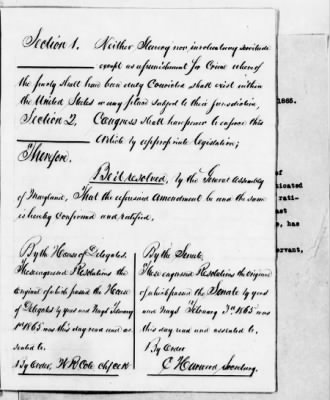 Section 1. Neither Slavery nor involuntary servitude
except as a punishment for Crime whereof
the party shall have been duly Convicted shall exist within
the United States or any place subject to their jurisdiction,
Section 2. Congress shall have power to enforce this
Article by appropriate legislation;
Therefore.
Be it resolved, by the General Assembly
of Maryland, That the aforesaid Amendment be and the same
is hereby Confirmed and ratified.
By the House of Delegates.
These engrossed Resolutions the
original of which passed the House
of Delegates by yeas and Nays February
1st 1865 was this day read and as-
sented to.
By Order, W R Cole Chf Clk
By the Senate.
These engrossed Resolutions the original
of which passed the Senate by yeas
and Nays February 3rd 1865 was
this day read and assented to.
By Order
C Harwood Secretary.
1865.
of
dicated
rati-
ast
e, has
ervant,